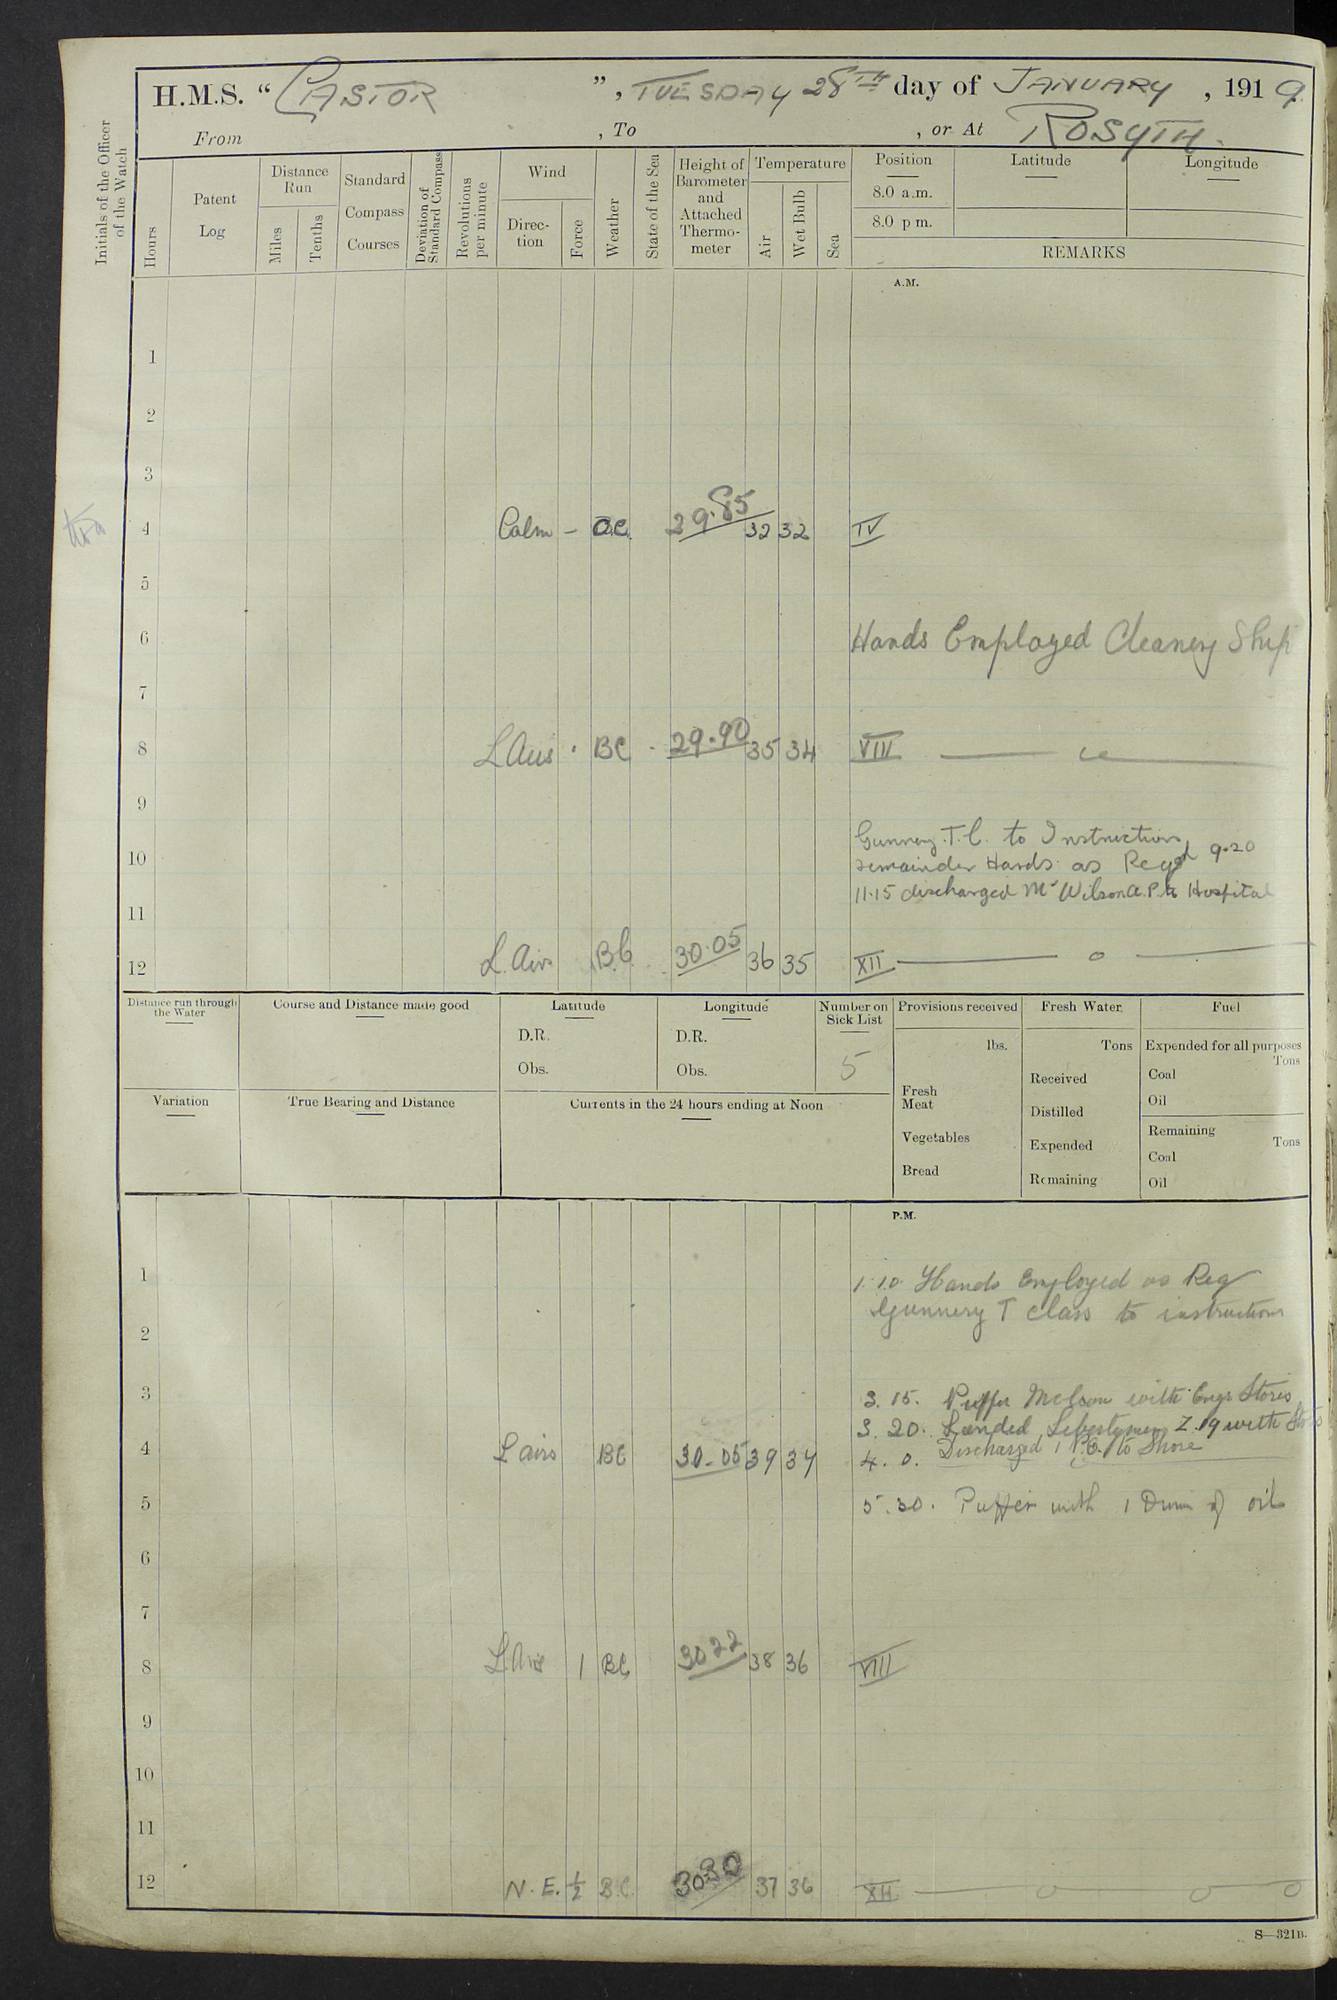 H.M.S. “CASTOR”, TUESDAY 28TH day of JANUARY, 1919.
From , To , or At ROSYTH.
Initials of the Officer of the Watch
Hours
Patent Log
Distance Run
Miles
Tenths
Standard Compass Courses
Deviation of Standard Compass
Revolutions per minute
Wind
Direction
Force
Weather
State of the Sea
Height of Barometer and Attached Thermometer
Temperature
Air
Wet Bulb
Sea
Position
8.0 a.m.
8.0 p m.
Latitude
Longitude
REMARKS
A.M.
1
2
3
4 Calm – O.C. 29.85 32 32 IV
5
6 Hands Employed Cleaning Ship
7
8 L Airs BC 29.90 35 34 VIII
9
Gunnery T.C. to Instruction,
10 remainder Hands as Reqd 9.20
11.15 discharged Mr Wilson A.P. to Hospital
11
12 L. Airs B.C 30.05 36 35 XII
Distance run through the Water
Course and Distance made good
Latitude
D.R.
Obs.
Longitude
D.R.
Obs.
Number on Sick List
5
Provisions received
lbs.
Fresh Meat
Vegetables
Bread
Fresh Water
Tons
Received
Distilled
Expended
Remaining
Fuel
Expended for all purposes
Tons
Coal
Oil
Remaining
Tons
Coal
Oil
Variation
True Bearing and Distance
Currents in the 24 hours ending at Noon
P.M.
1 1.10. Hands Employed as Req
Gunnery T class to instructions
2
3 3.15. Puffer with Stores
3.20. Landed Libertymen with
4 L airs BC 30.05 39 37 4.0. Discharged 1 to Shore
5 5.30. Puffer with 1 Drum of oil
6
7
8 L Airs 1 BC 30 22 38 36 VIII
9
10
11
12 N.E. ½ B.C. 30 30 37 36 XII
S—321B.